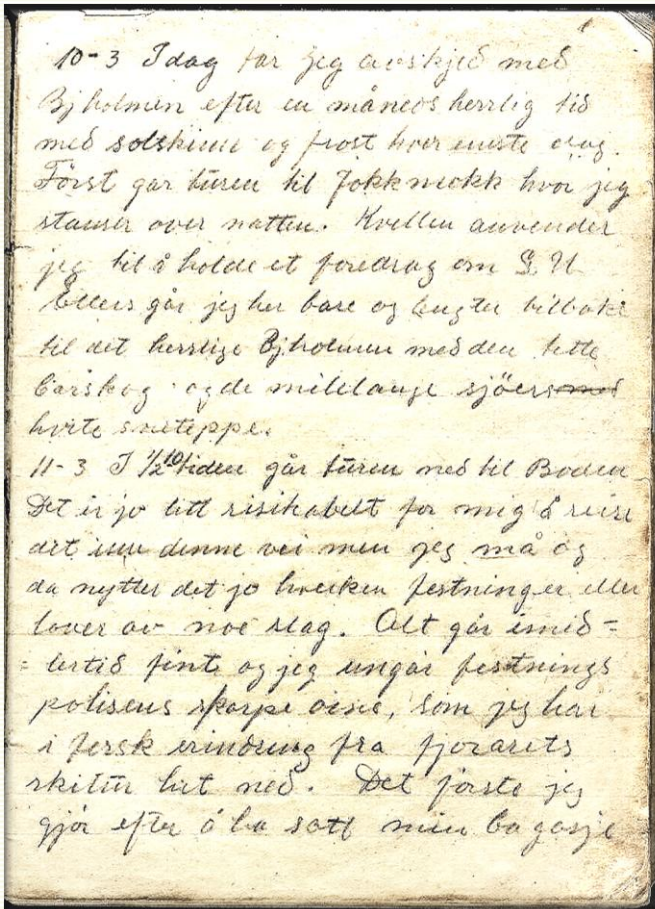 10-3 Idag tar jeg avskjed med
Bjholmen efter en måneds herrlig tid
med solskinn og frost hver eneste dag.
Först går turen til Jokkmokk hvor jeg
stanser over natten. Kvellen anvender
jeg til å holde et foredrag om S. U.
Ellers går jeg her bare og lengter tilbake
til det herrlige Bjholmen med den tette
barskog og de milelange sjöers med
hvite sneteppe.
11-3 I 1/2 10 tiden går turen ned til Boden
Det er jo litt risikabelt for mig å reise
det denne vei men jeg må og
da nytter det jo hverken festninger eller
lover av noe slag. Alt går imid=
=lertid fint og jeg ungår festnings
polisens skarpe öine, som jeg har
i fersk erindring fra fjorårets
skitur hit ned. Det förste jeg
gjör efter å ha satt min bagasje